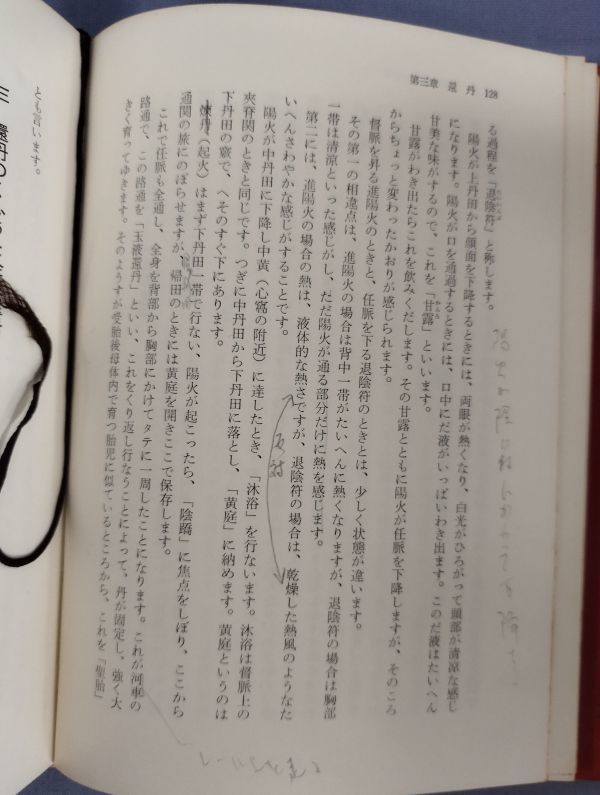 第三章 還丹 128
る過程を『退陰符』と称します。
陽火が上丹田から顔面を下降するときには、両眼が熱くなり、白光がひろがって頭部が清涼な感じ
になります。陽火が口を通過するときには、口中にだ液がいっぱいわき出ます。このだ液はたいへん
甘美な味がするので、これを「甘露」といいます。
甘露がわき出たらこれを飲みくだします。その甘露とともに陽火が任脈を下降しますが、そのころ
からちょっと変わったかおりが感じられます。
督脈を昇る進陽火のときと、任脈を下る退陰符のときとは、少しく状態が違います。
その第一の相違点は、進陽火の場合は背中一帯がたいへんに熱くなりますが、退陰符の場合は胸部
一帯は清涼といった感じがし、ただ陽火が通る部分だけに熱を感じます。
第二には、進陽火の場合の熱は、液体的な熱さですが、退陰符の場合は、乾燥した熱風のようなたい
いへんさわやかな感じがすることです。
反対
陽火が中丹田に下降し中黄（心窩の附近）に達したとき、「沐浴」を行ないます。沐浴は督脈上の
夾脊関のときと同じです。つぎに中丹田から下丹田に落とし、「黄庭」に納めます。黄庭というのは
下丹田の竅で、へそのすぐ下にあります。
煉丹（起火）はまず下丹田一帯で行ない、陽火が起こったら、「陰蹻」に焦点をしぼり、ここから
通関の旅にのぼらせますが、帰田のときには黄庭を開きここで保存します。
これで任脈も全通し、全身を背部から胸部にかけてタテに一周したことになります。これが河車の
路通で、この路通を「玉液還丹」といい、これをくり返し行なうことによって、丹が固定し、強く大
きく育ってゆきます。そのようすが受胎後母体内で育つ胎児に似ているところから、これを「聖胎」
とも言います。